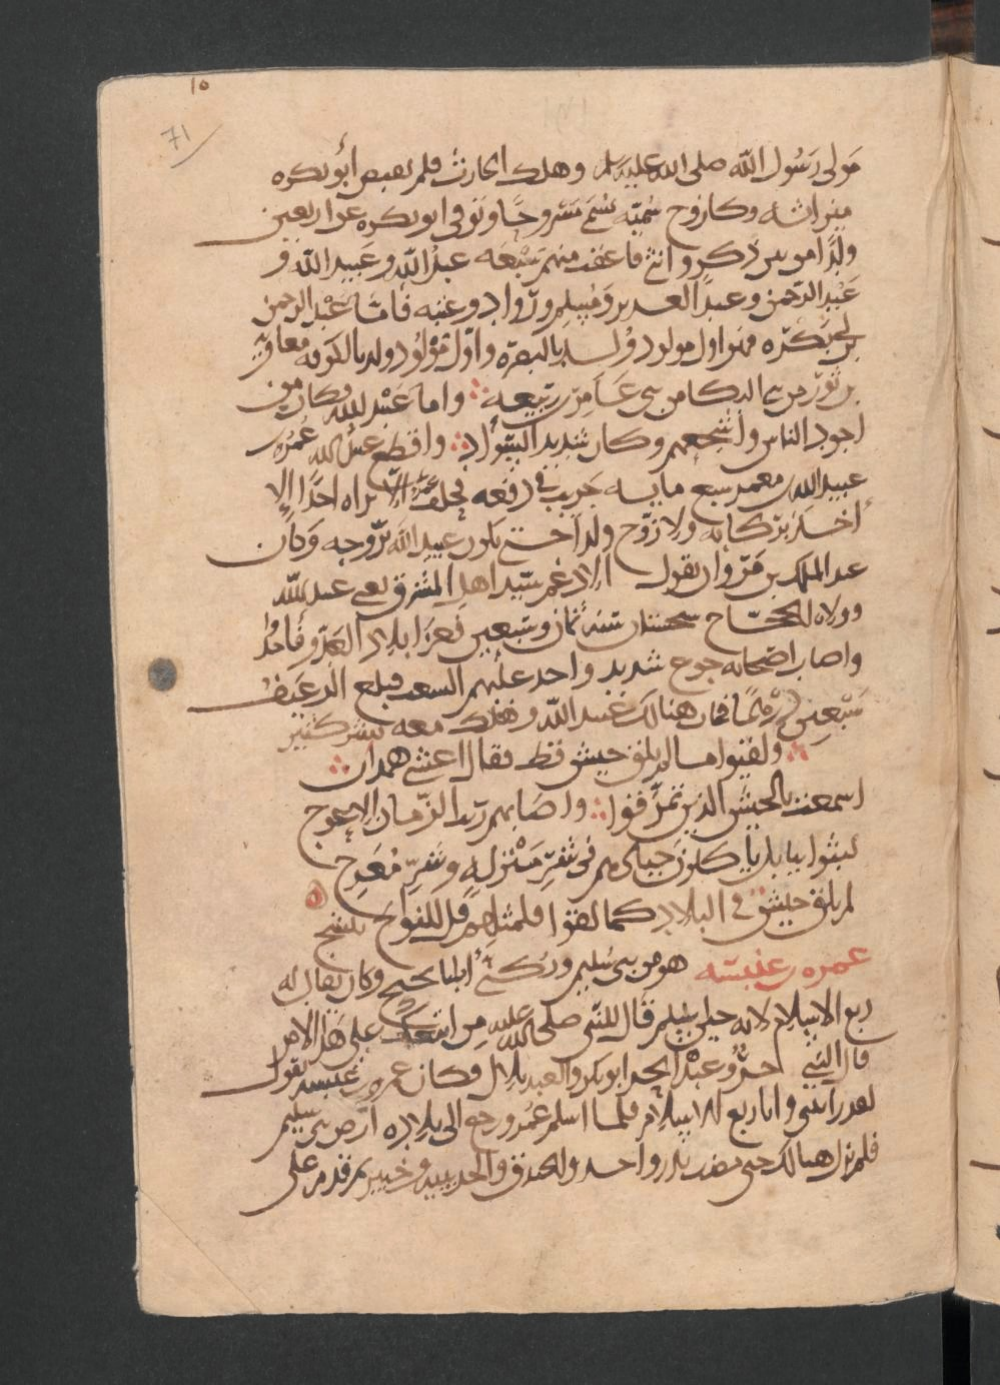 10
71
مولى رسول الله صلى الله عليه وسلم وهلك الحارث فلم يقبض أبو بكره
ميراثه وكان زوج سميه يسمى مسروحا وتوفى ابو بكره عن اربعين
ولدا من بين ذكر وانثى فاعقب منهم سبعه عبد الله وعبيد الله و
عبد الرحمن وعبد العزيز ومسلم ورواد وعتبه فاما عبد الرحمن
بن ابي بكره فهو اول مولود ولد بالبصره واول مولود ولد بالكوفه معاويه
بن ثور من بني البكا من بني عامر بن ربيعه واما عبيد الله وكان من
اجود الناس واشجعهم وكان شديد السواد واقطع عبيد الله عمر بن
عبيد الله بن معمر سبع مايه جريب في دفعه فحلف عمر الا يراه احدا الا
أخذ بركابه ولا زوج ولدا حتى يكون عبيد الله يزوجه وكان
عبد الملك بن مروان يقول الادغم سيد اهل المشرق يعني عبيد الله
وولاه الحجاج سجستان سنه ثمان وسبعين فغزا بلاد العدو فاخذوا
واصاب اصحابه جوع شديد واخذ عليهم الشعب فبلغ الرغيف
سبعين درهما فمات هنالك عبيد الله وهلك معه بشر كثير
ولقيوا ما لم يلق جيش قط فقال اعشى همدان
اسمعت بالجيش الذين تمزقوا واصابهم ريب الزمان الاعوج
لبثوا بكابل ياكلون جيادهم في شر منزله وشر معرج
لم يلق جيش في البلاد كما لقوا فلمثلهم قل للنوايح تنشج
عمرو بن عنبسه هو من بني سليم ويكنى ابا نجيح وكان يقال له
ربع الاسلام لانه حين اسلم قال للنبي صلى الله عليه من اتبعك على هذا الامر
قال النبي حر وعبد الحر ابو بكر والعبد بلال وكان عمرو بن عنبسه يقول
لقد رايتني وانا ربع الاسلام فلما اسلم عمرو رجع الى بلاده ارض بني سليم
فلم يزل هنالك حتى مضت بدر واحد والخندق والحديبيه وخيبر ثم قدم على